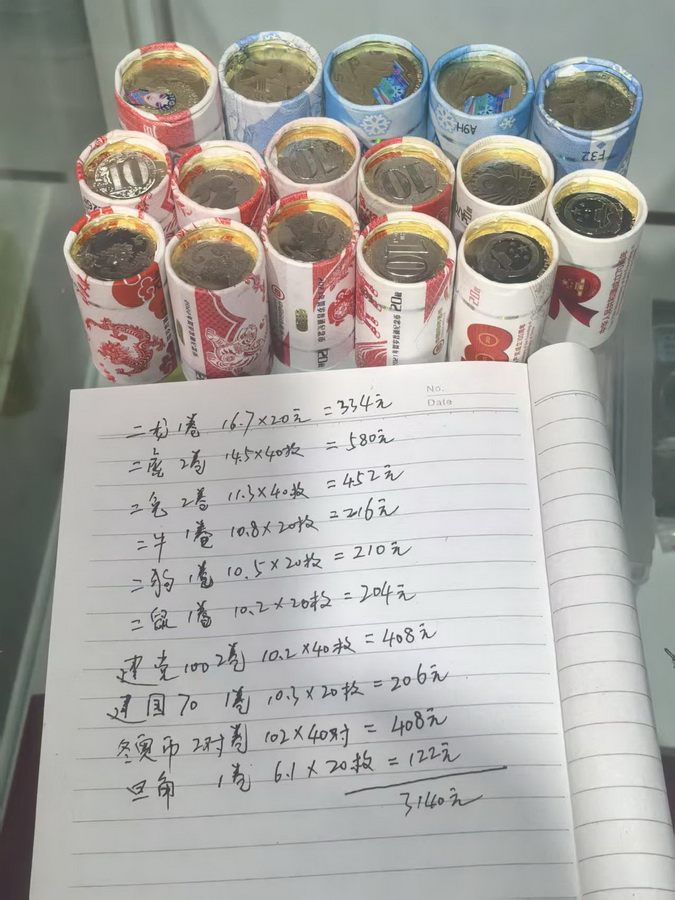 10
10
10
10
A9H
F32
20枚
20枚
20枚
20枚
No.
Date
二龙 1卷 16.7×20元 =334元
二虎 2卷 14.5×40枚 =580元
二兔 2卷 11.3×40枚 =452元
二牛 1卷 10.8×20枚 =216元
二狗 1卷 10.5×20枚 =210元
二鼠 1卷 10.2×20枚 =204元
建党100 2卷 10.2×40枚 =408元
建国70 1卷 10.3×20枚 =206元
冬奥币 2对卷 102×40对 =408元
旦角 1卷 6.1×20枚 =122元
3140元